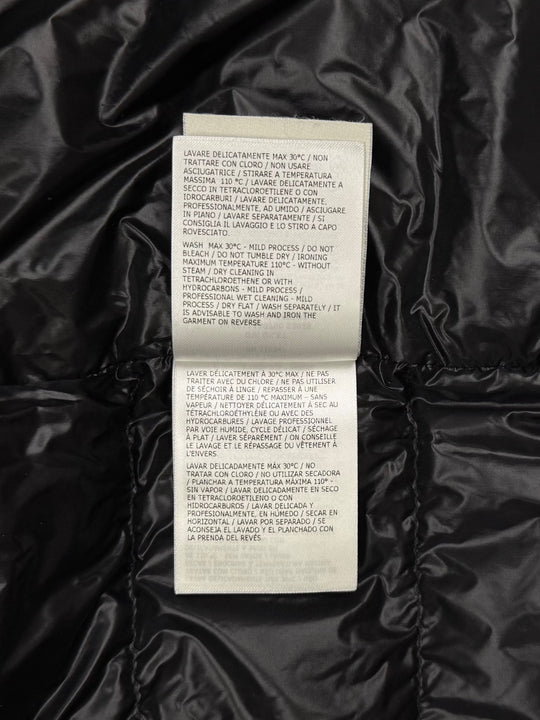 LAVARE DELICATAMENTE MAX 30°C / NON
TRATTARE CON CLORO / NON USARE
ASCIUGATRICE / STIRARE A TEMPERATURA
MASSIMA 110 °C / LAVARE DELICATAMENTE A
SECCO IN TETRACLOROETILENE O CON
IDROCARBURI / LAVARE DELICATAMENTE,
PROFESSIONALMENTE, AD UMIDO / ASCIUGARE
IN PIANO / LAVARE SEPARATAMENTE / SI
CONSIGLIA IL LAVAGGIO E LO STIRO A CAPO
ROVESCIATO.
WASH MAX 30°C - MILD PROCESS / DO NOT
BLEACH / DO NOT TUMBLE DRY / IRONING
MAXIMUM TEMPERATURE 110°C - WITHOUT
STEAM / DRY CLEANING IN
TETRACHLOROETHENE OR WITH
HYDROCARBONS - MILD PROCESS /
PROFESSIONAL WET CLEANING - MILD
PROCESS / DRY FLAT / WASH SEPARATELY / IT
IS ADVISABLE TO WASH AND IRON THE
GARMENT ON REVERSE.
LAVER DÉLICATEMENT À 30°C MAX / NE PAS
TRAITER AVEC DU CHLORE / NE PAS UTILISER
DE SÉCHOIR À LINGE / REPASSER À UNE
TEMPÉRATURE DE 110 °C MAXIMUM - SANS
VAPEUR / NETTOYER DÉLICATEMENT À SEC AU
TÉTRACHLOROÉTHYLÈNE OU AVEC DES
HYDROCARBURES / LAVAGE PROFESSIONNEL
PAR VOIE HUMIDE, CYCLE DÉLICAT / SÉCHAGE
À PLAT / LAVER SÉPARÉMENT / ON CONSEILLE
LE LAVAGE ET LE RÉPASSAGE DU VÊTEMENT À
L'ENVERS.
LAVAR DELICADAMENTE MÁX 30°C / NO
TRATAR CON CLORO / NO UTILIZAR SECADORA
/ PLANCHAR A TEMPERATURA MÁXIMA 110° -
SIN VAPOR / LAVAR DELICADAMENTE EN SECO
EN TETRACLOROETILENO O CON
HIDROCARBUROS / LAVAR DELICADA Y
PROFESIONALMENTE, EN HÚMEDO / SECAR EN
HORIZONTAL / LAVAR POR SEPARADO / SE
ACONSEJA EL LAVADO Y EL PLANCHADO CON
LA PRENDA DEL REVÉS.